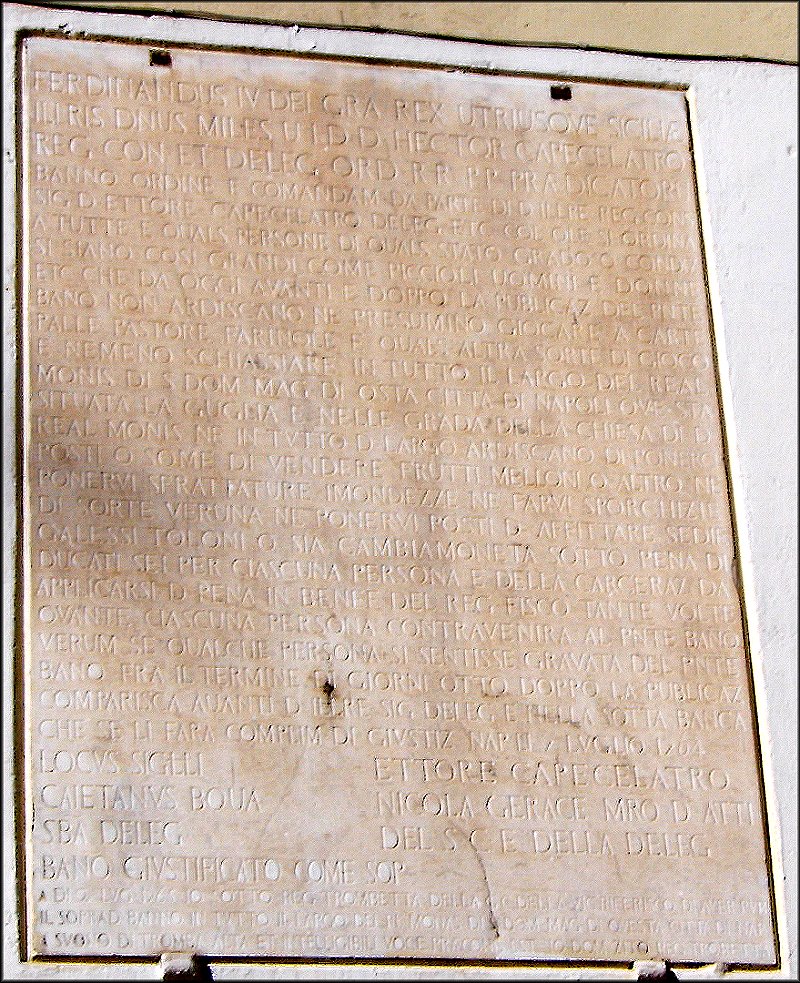 FERDINANDUS IV DEI GRA REX UTRIUSQVE SICILIÆ
ILLRIS DNUS MILES U I D D HECTOR CAPECELATRO
REG CON ET DELEG ORD R R P P PRADICATORI
BANNO ORDINE E COMANDAM DA PARTE DI D ILLRE REG CONS
SIG D ETTORE CAPECELATRO DELEG ETC COL QLE SI ORDINA
A TUTTE E QUALS PERSONE DI QUALS STATO GRADO O CONDIZ
SI SIANO COSI GRANDI COME PICCIOLI UOMINI E DONNE
ETC CHE DA OGGI AVANTI E DOPPO LA PUBLICAZ DEL PNTE
BANO NON ARDISCANO NE PRESUMINO GIOCARE A CARTE
PALLE PASTORE FARINOLE E QUALS ALTRA SORTE DI GIOCO
E NEMENO SCHIASSIARE IN TUTTO IL LARGO DEL REAL
MONIS DI S DOM MAG DI QSTA CITTA DI NAPOLI OVE STA
SITUATA LA GUGLIA E NELLE GRADA DELLA CHIESA DI D
REAL MONIS NE IN TVTTO D LARGO ARDISCANO DI PONERE
POSTI O SOME DI VENDERE FRUTTI MELLONI O ALTRO NE
PONERVI SFRATTATURE IMONDEZZE NE FARVI SPORCHIZIE
DI SORTE VERUNA NE PONERVI POSTI D AFFITTARE SEDIE
GALESSI TOLOMI O SIA GAMBIAMONETA SOTTO PENA DI
DUCATI SEI PER CIASCUNA PERSONA E DELLA CARCERAZ DA
APPLICARSI D PENA IN BENEF DEL REG FISCO TANTE VOLTE
QVANTE CIASCUNA PERSONA CONTRAVENIRA AL PNTE BANO
VERUM SE QUALCHE PERSONA SI SENTISSE GRAVATA DEL PNTE
BANO FRA IL TERMINE DI GIORNI OTTO DOPPO LA PUBLICAZ
COMPARISCA AUANTI D ILLRE SIG DELEG E NELLA SOTTA BANCA
CHE SE LI FARA COMPLIM DI GIVSTIZ NAP LUGLIO 1764
LOCVS SIGELI ETTORE CAPECELATRO
CAIETANVS BOUA NICOLA GERACE MRO D ATTI
SBA DELEG DEL S C E DELLA DELEG
BANO GIVSTIFICATO COME SOP
A DI LUG IO OTTO REG TROMBETTA DELLA G C DELLA VIC RIFERISCO D AVER PUB
IL SOPRAD BANNO IN TUTTO IL LARGO DEL R MONAS DI S DOM MAG DI QVESTA CITTA DI NAP
A SVONO DI TROMBA ALTA ET INTELLIGIBILI VOCE REG TROMBETTA